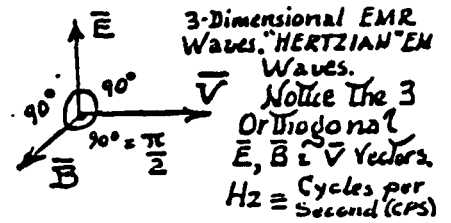 E̅
90°
90°
V̅
90° = π/2
B̅
3-Dimensional EMR
Waves. "HERTZIAN" EM
Waves.
Notice The 3
Orthogonal
E̅, B̅ & V̅ Vectors.
Hz ≡ Cycles per
Second (CPS)